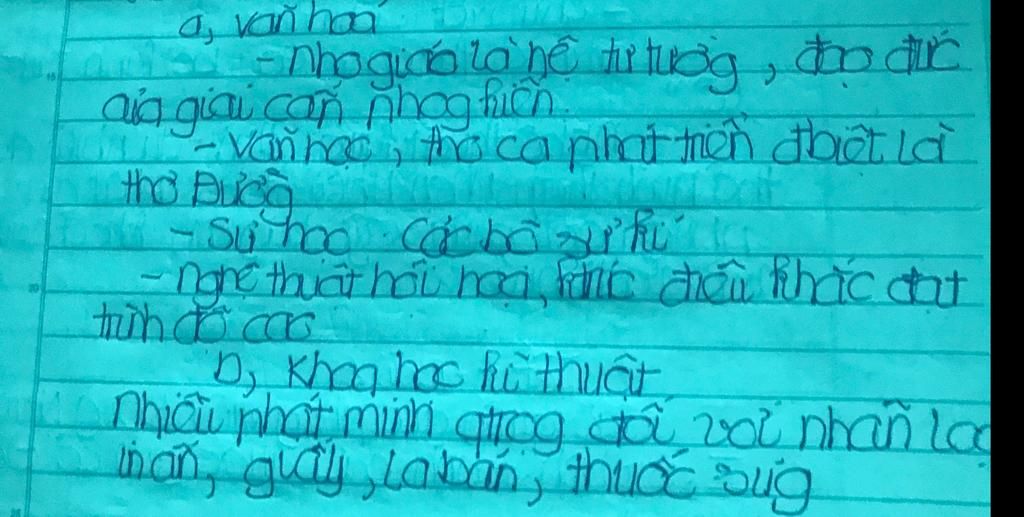 a, văn hoá
- Nhogiáo là hệ tư tưởng, đạo đức
của giai cấn nhog kiến.
- văn học, thơ ca phát triển đbiệt là
thơ Đường
- Sử học các bộ sử kí
- Nghệ thuật hội hoạ, điêu khắc đạt
trình độ cao
b, Khoa học kĩ thuật
Nhiều phát minh qtrog đối với nhân
in ấn, giấy, la bàn, thuốc súg